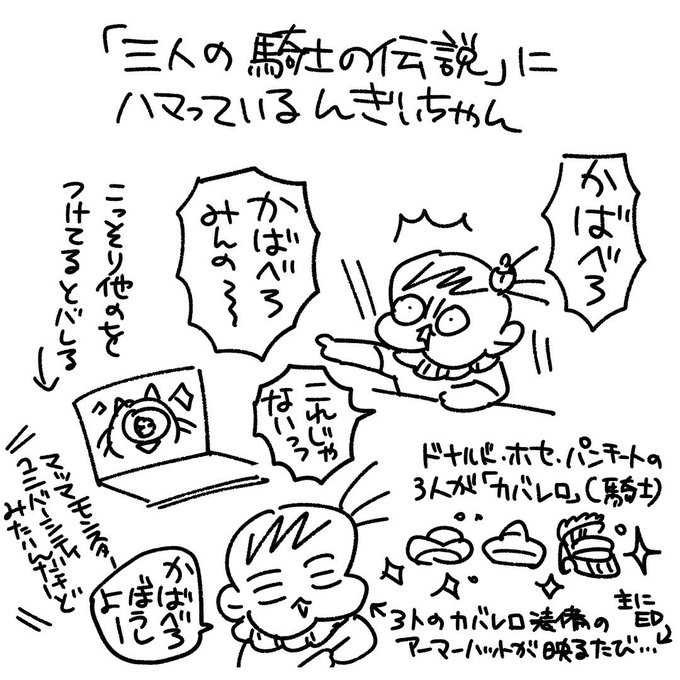 「三人の騎士の伝説」に
ハマっているんぎぃちゃん
かばべろ
かばべろ
みんの〜
こっそり他のを
つけてるとバレる
これじゃ
ないっっ
マッマモンスター
ユニバーシティ
みたいんだけど
かばべろ
ぼうし
よー
ドナルド・ホセ・パンチートの
3人が「カバレロ」(騎士)
3人のカバレロ装備の
アーマーハットが映るたび…
主に
ED